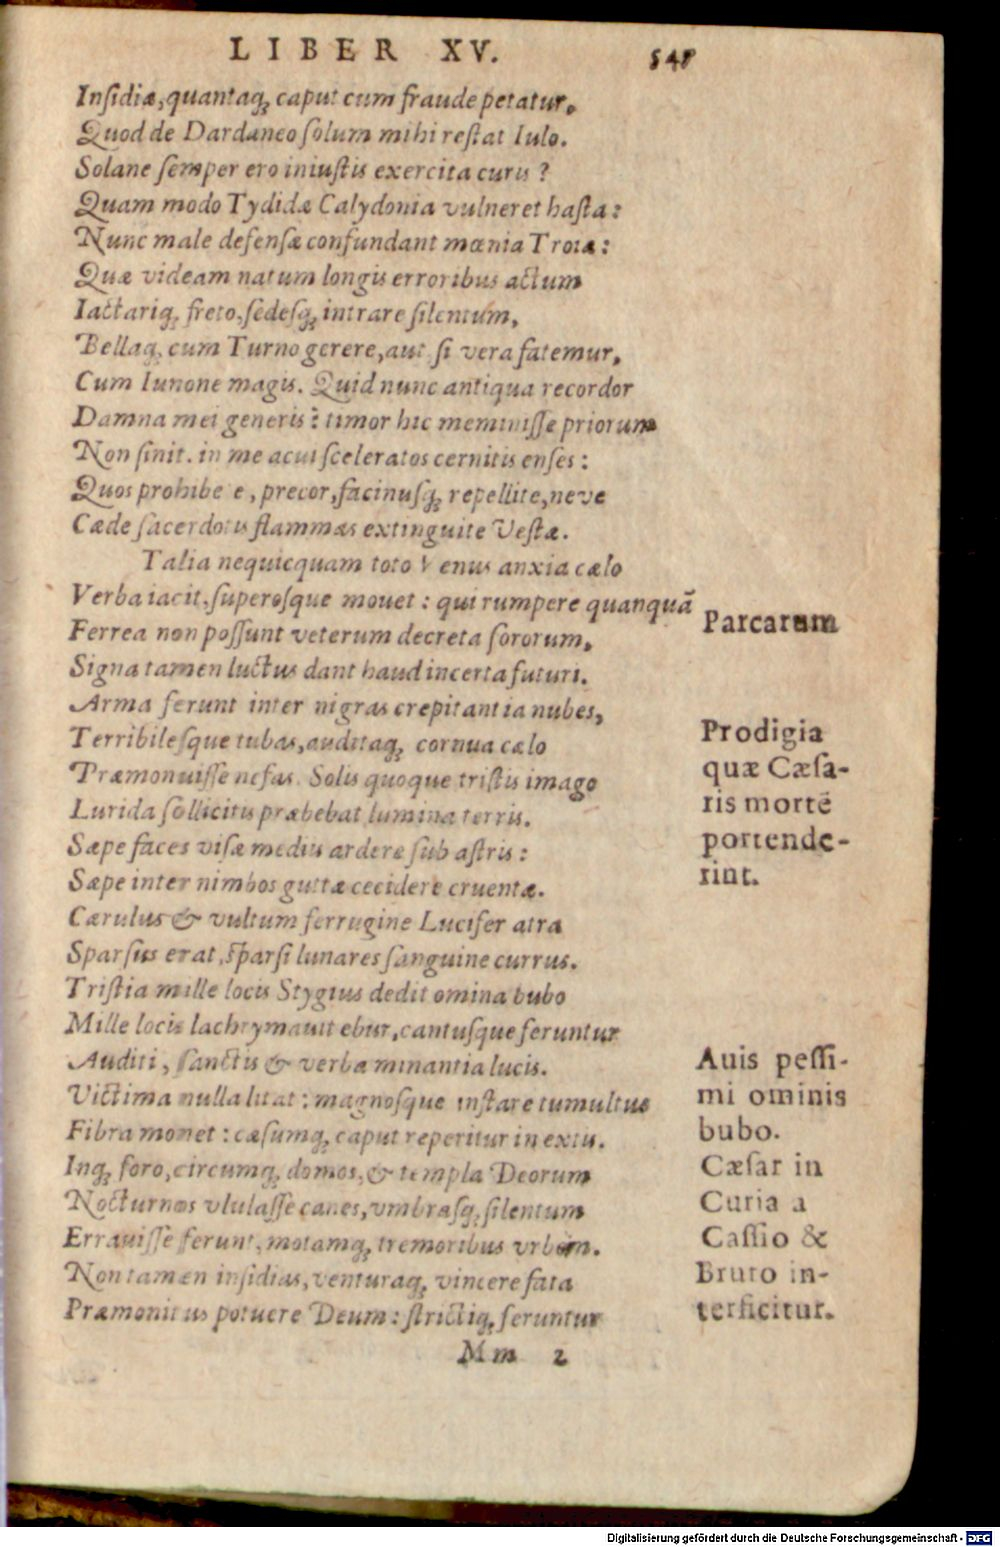 LIBER XV. 545
Insidiæ, quantaq; caput cum fraude petatur,
Quod de Dardaneo solum mihi restat Iulo.
Solane semper ero iniustis exercita curis?
Quam modo Tydidæ Calydonia vulneret hasta:
Nunc male defensæ confundant mœnia Troiæ:
Quæ videam natum longis erroribus actum
Iactariq; freto, sedesq; intrare silentum,
Bellaq; cum Turno gerere, aut si vera fatemur,
Cum Iunone magis. Quid nunc antiqua recordor
Damna mei generis? timor hic meminisse priorum
Non sinit. in me acui sceleratos cernitis enses:
Quos prohibe e, precor, facinusq; repellite, neve
Cæde sacerdotis flammas extinguite Vestæ.
Talia nequicquam toto Venus anxia cælo
Verba iacit, superosque mouet: qui rumpere quanquã
Ferrea non possunt veterum decreta sororum,
Parcarum
Signa tamen luctus dant haud incerta futuri.
Arma ferunt inter nigras crepitantia nubes,
Terribilesque tubas, auditaq; cornua cælo
Præmonuisse nefas. Solis quoque tristis imago
Lurida sollicitis præbebat lumina terris.
Sæpe faces visæ mediis ardere sub astris:
Sæpe inter nimbos guttæ cecidere cruentæ.
Prodigia
quæ Cæsa-
ris mortē
portende-
rint.
Cærulus & vultum ferrugine Lucifer atra
Sparsus erat, sparsi lunares sanguine currus.
Tristia mille locis Stygius dedit omina bubo
Mille locis lachrymauit ebur, cantusque feruntur
Auditi, sanctis & verba minantia lucis.
Victima nulla litat: magnosque instare tumultus
Fibra monet: cæsumq; caput reperitur in extis.
Avis pessi-
mi ominis
bubo.
Inq; foro, circumq; domos, & templa Deorum
Nocturnos vlulasse canes, vmbrasq; silentum
Erravisse ferunt, motamq; tremoribus vrbem.
Non tamen insidias, venturaq; vincere fata
Præmonitus potuere Deum: strictiq; feruntur
Cæsar in
Curia a
Cassio &
Bruto in-
terficitur.
Mm 2
Digitalisierung gefördert durch die Deutsche Forschungsgemeinschaft - DFG